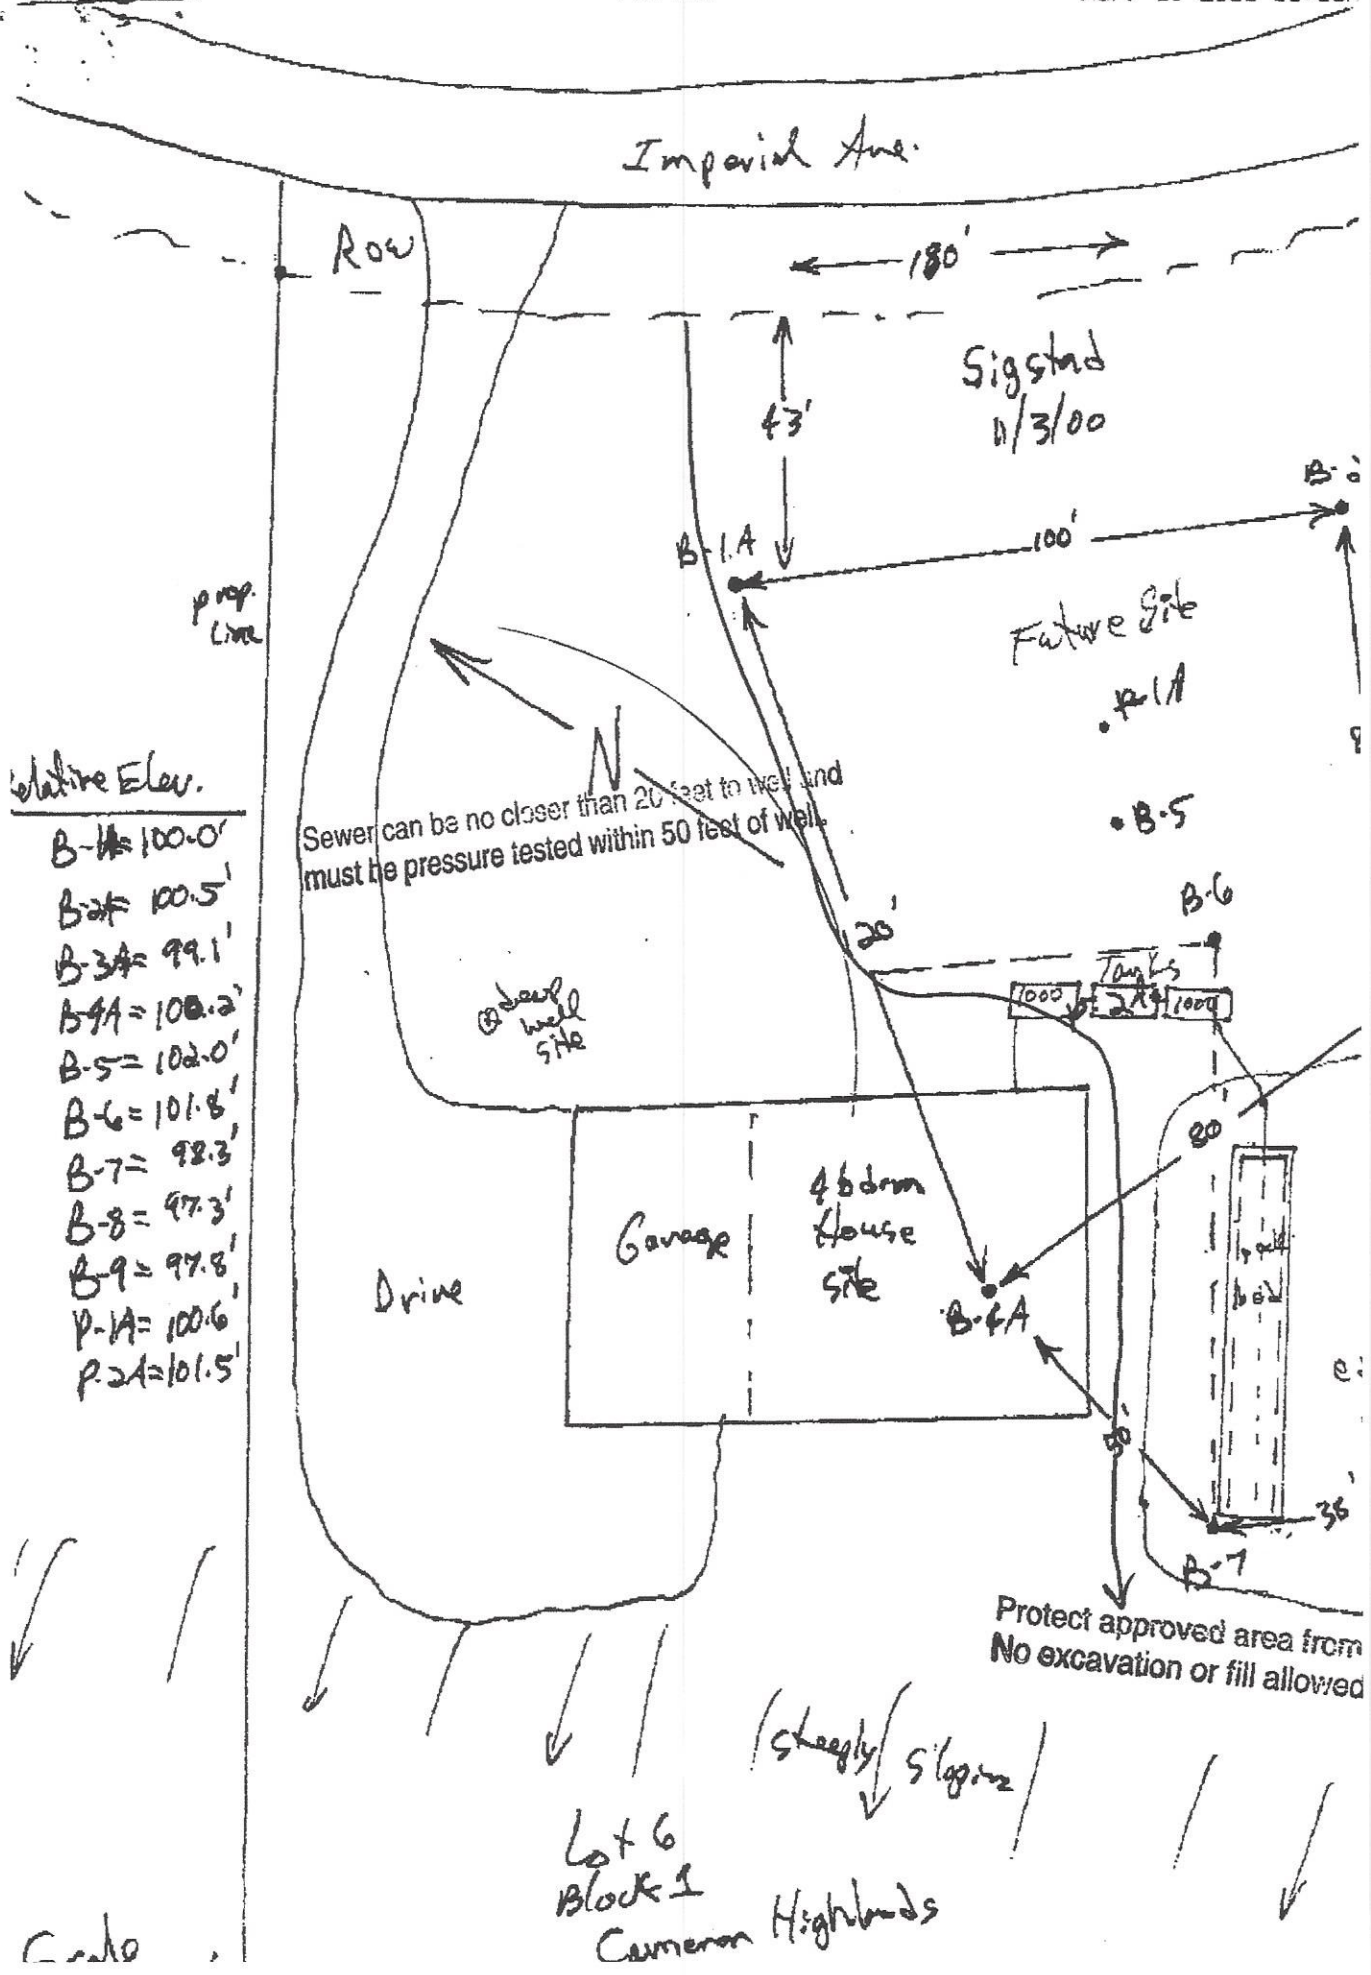 Imperial Ave.
Row
180'
43'
Sigstad
11/3/00
B-1A
100'
prop.
Line
Future Site
P-1A
N
B-5
Sewer can be no closer than 20 feet to well and
must be pressure tested within 50 feet of well.
elative Elev.
B-1A= 100.0'
B-2A= 100.5'
B-3A= 99.1'
B-4A= 100.2'
B-5= 102.0'
B-6= 101.8'
B-7= 98.3'
B-8= 97.3'
B-9= 97.8'
P-1A= 100.6'
P-2A=101.5'
B-6
20'
Tanks
1000
1000
deep
well
site
80
Garage
4 bdrm
House
site
Drive
B-4A
bed
38'
B-7
Protect approved area from
No excavation or fill allowed
Steeply Sloping
Lot 6
Block 1
Cameron Highlands
Grade